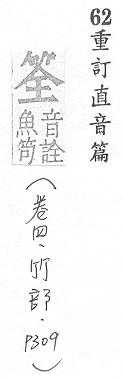 62重訂直音篇
筌
音詮
魚笱
(卷四·竹部·P309)